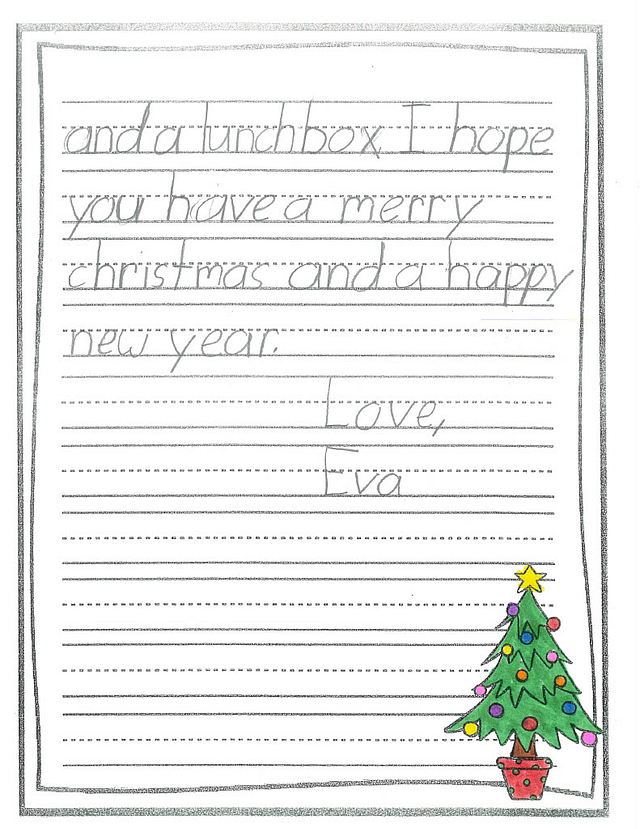 and a lunchbox. I hope
you have a merry
christmas and a happy
new year.
Love,
Eva